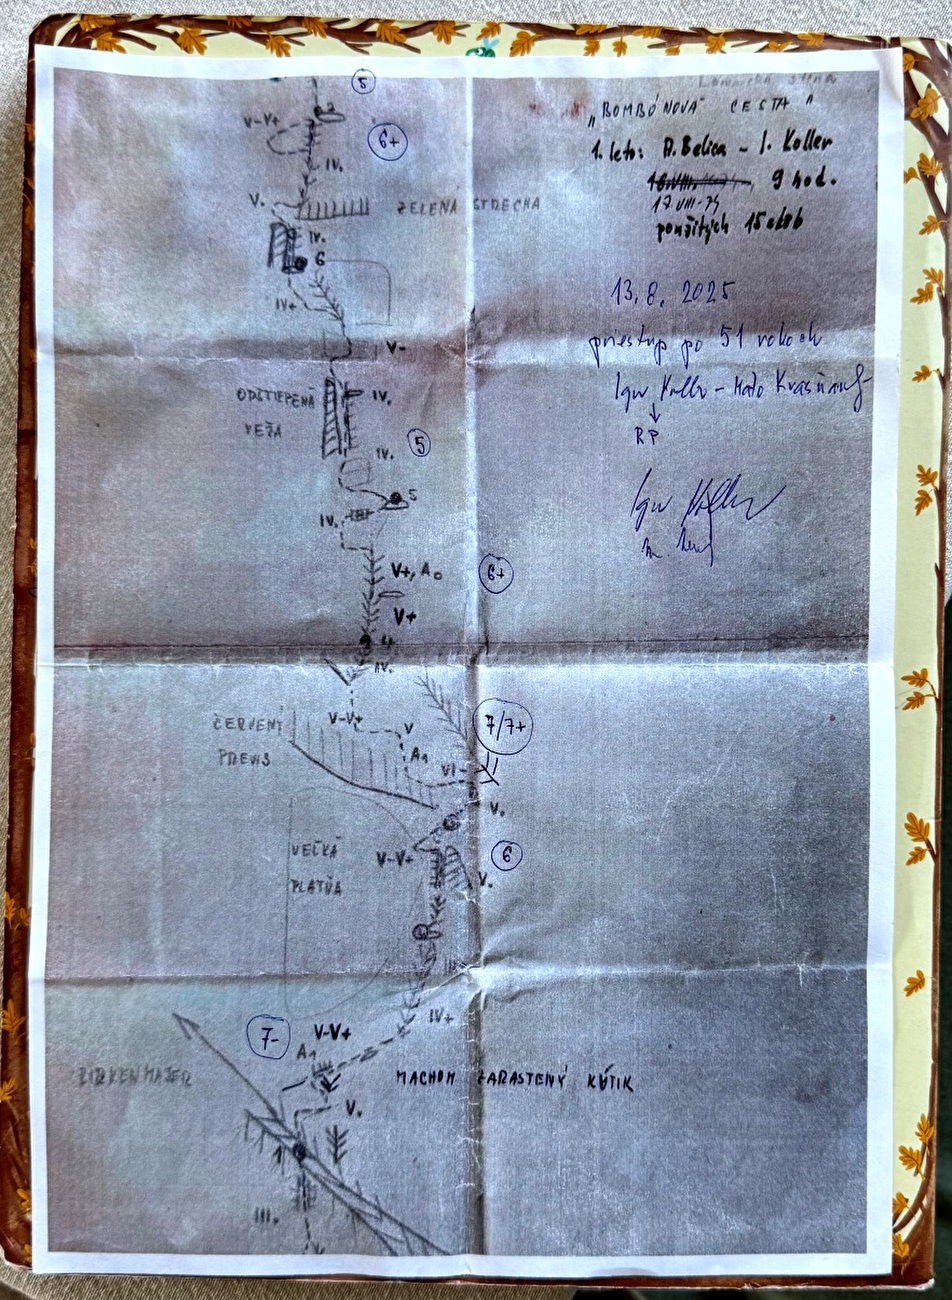 „BOMBÓNOVÁ CESTA"
1. leto: A. Belica - I. Koller
9 hod.
17 VIII-74
použitých 15 skôb
13.8. 2025
priestup po 51 rokoch
Igor Koller - Maťo Krasňanský
↓
RP
Igor Koller
8
2
V-V+
6+
IV.
V.
ZELENÁ STRECHA
IV.
6
IV+
V-
ODŠTIEPENÁ
VEŽA
IV.
5
IV.
5
IV.
V+, A0
6+
V+
4
IV.
ČERVENÝ
PREVIS
V-V+
V
A1
VI-
7/7+
V.
VEĽKÁ
PLATŇA
V-V+
6
V.
III
IV+
7-
V-V+
A1
ZIRKENMAJER
MACHOM ZARASTENÝ KÚTIK
V.
1
III.